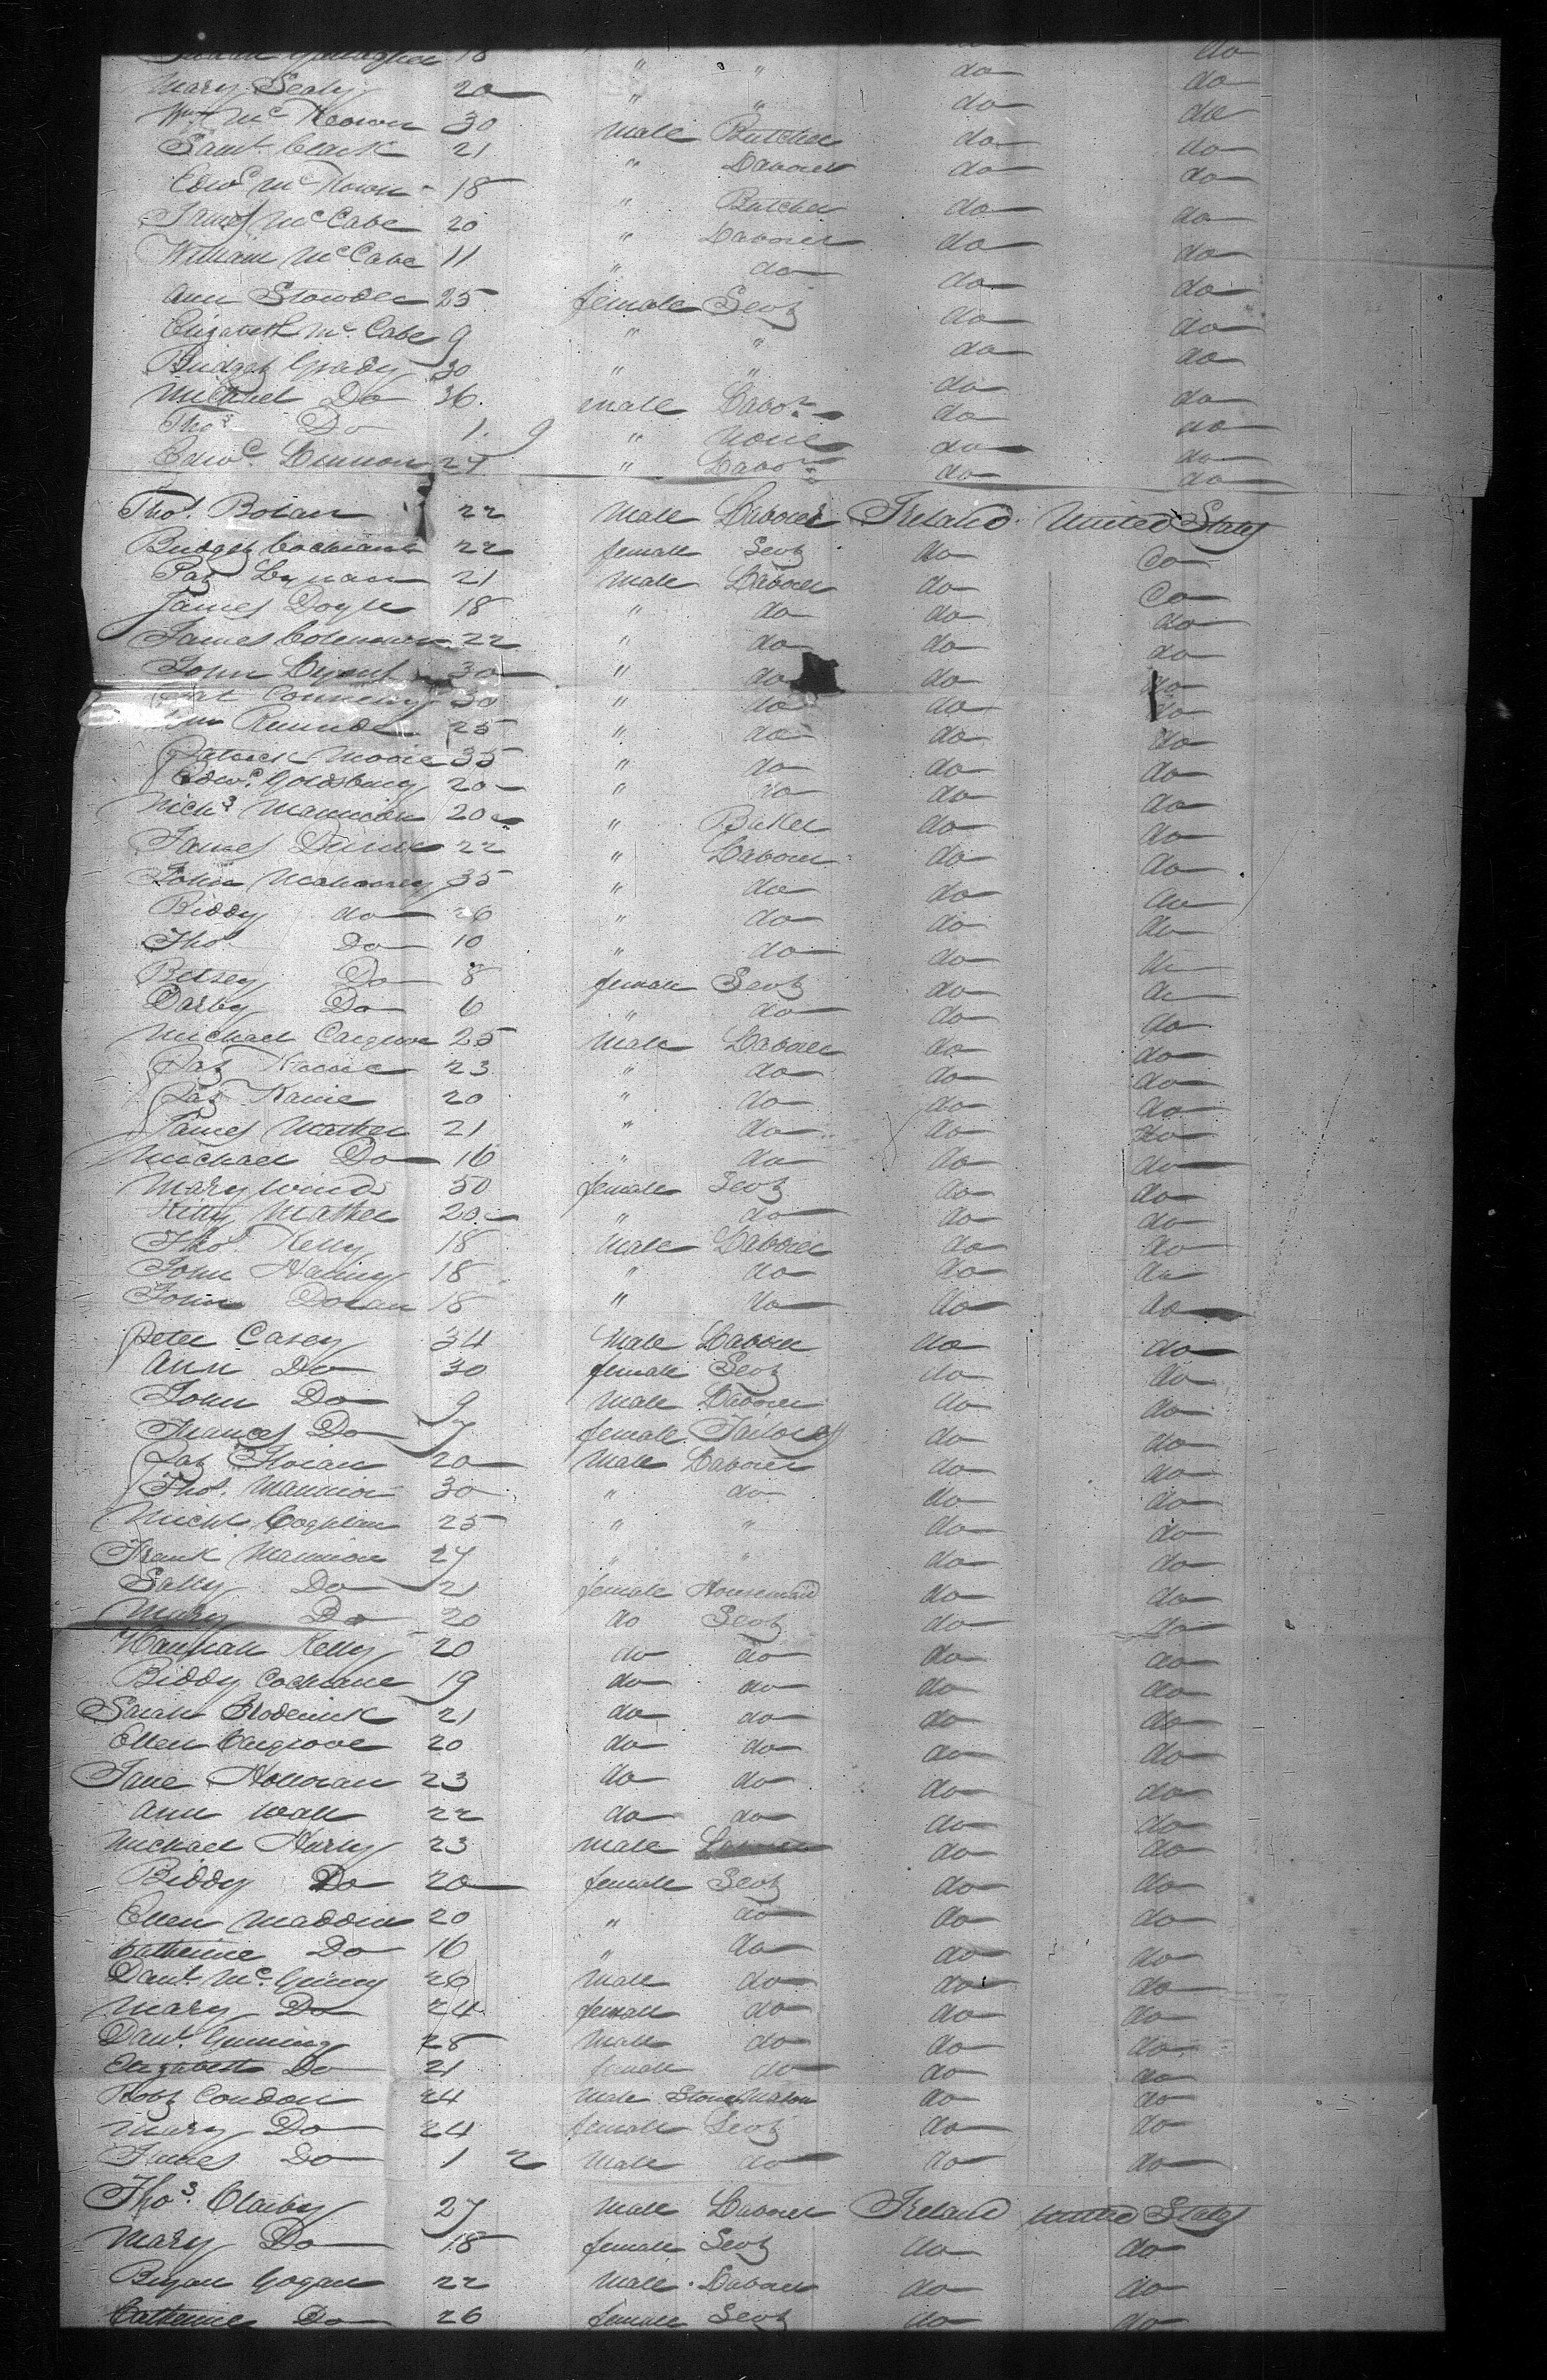 18 " " do do
Mary Sealy 20 " " do do
Wm McKeown 30 male Butcher do do
Saml Clark 21 " Laborer do do
Edwd McKown 18 " Butcher do do
James McCabe 20 " Laborer do do
William McCabe 11 " do do do
Ann Slowden 25 female Servt do do
Elizabeth McCabe 9 " " do do
Bridget Grady 30 " " do do
Michael Do 36 male Labor do do
Thos Do 1. 9 " None do do
Edwd Lennon 27 " Labor do do
Thos. Bolan 22 Male Laborer Ireland United States
Bridget Cochrane 22 female Servt do Do
Pat Lynan 21 Male Laborer do Do
James Doyle 18 " do do do
James Coleman 22 " do do do
John 30 " do do do
Pat Connelly 30 " do do do
25 " do do do
Patrick Moore 35 " do do do
Edwd. Goldsbury 20 " do do do
Nichs Mannion 20 " Baker do do
James Dunn 22 " Laborer do do
John Mahoney 35 " do do do
Biddy do 26 " do do do
Thos Do 10 " do do do
Betsey Do 8 female Servt do do
Darby Do 6 " do do do
Michael Cargrove 25 Male Laborer do do
Pat 23 " do do do
Pat Kaine 20 " do do do
James Mather 21 " do do do
Michael Do 16 " do do do
Mary Winds 50 female Servt do do
Kitty Mather 20 " do do do
Thos. Kelly 18 Male Laborer do do
John 18 " do do do
John Dolan 18 " do do do
Peter Casey 34 Male Laborer do do
Ann Do 30 female Servt do do
John Do 9 Male Laborer do do
Frances Do 7 female Tailoress do do
Pat 20 Male Laborer do do
Thos. Mannion 30 " do do do
Michl Coghlan 25 " " do do
Frank Mannion 27 " " do do
Sally Do 21 female Housemaid do do
Mary Do 20 do Servt do do
Hannah Kelly 20 do do do do
Biddy Cochrane 19 do do do do
Sarah Broderick 21 do do do do
Ellen Cargrove 20 do do do do
Jane Holloran 23 do do do do
Ann Wall 22 do do do do
Michael Hurly 23 Male Laborer do do
Biddy Do 20 female Servt do do
Ellen Maddin 20 " do do do
Catherine Do 16 " do do do
Danl McGinny 26 Male do do do
Mary Do 24 female do do do
Danl. Gunning 28 Male do do do
Elizabeth Do 21 female do do do
Robt Condon 24 Male Stone Mason do do
Mary Do 24 female Servt do do
James Do 1 2 Male do do do
Thos. Clarby 27 Male Laborer Ireland United States
Mary Do 18 female Servt do do
Bryan Gogan 22 Male Laborer do do
Catherine Do 26 female Servt do do